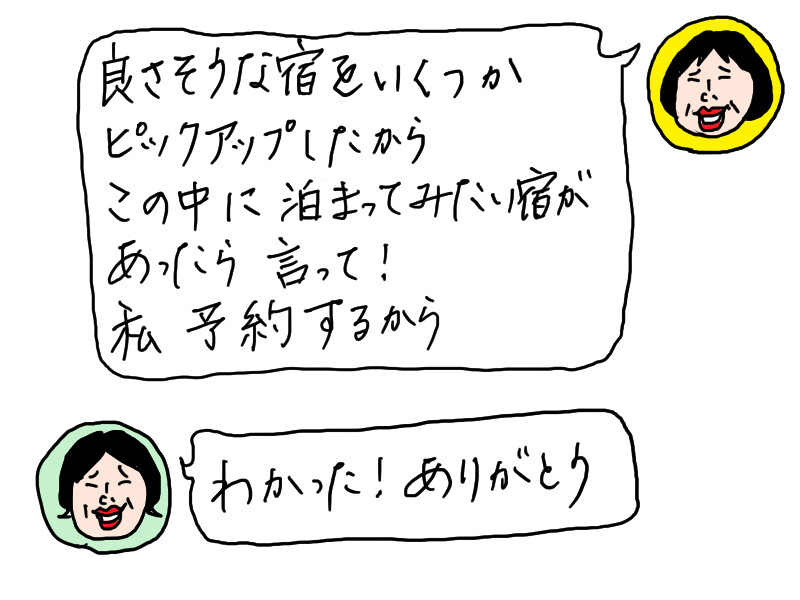 良さそうな宿をいくつか
ピックアップしたから
この中に泊まってみたい宿が
あったら言って!
私予約するから
わかった!ありがとう